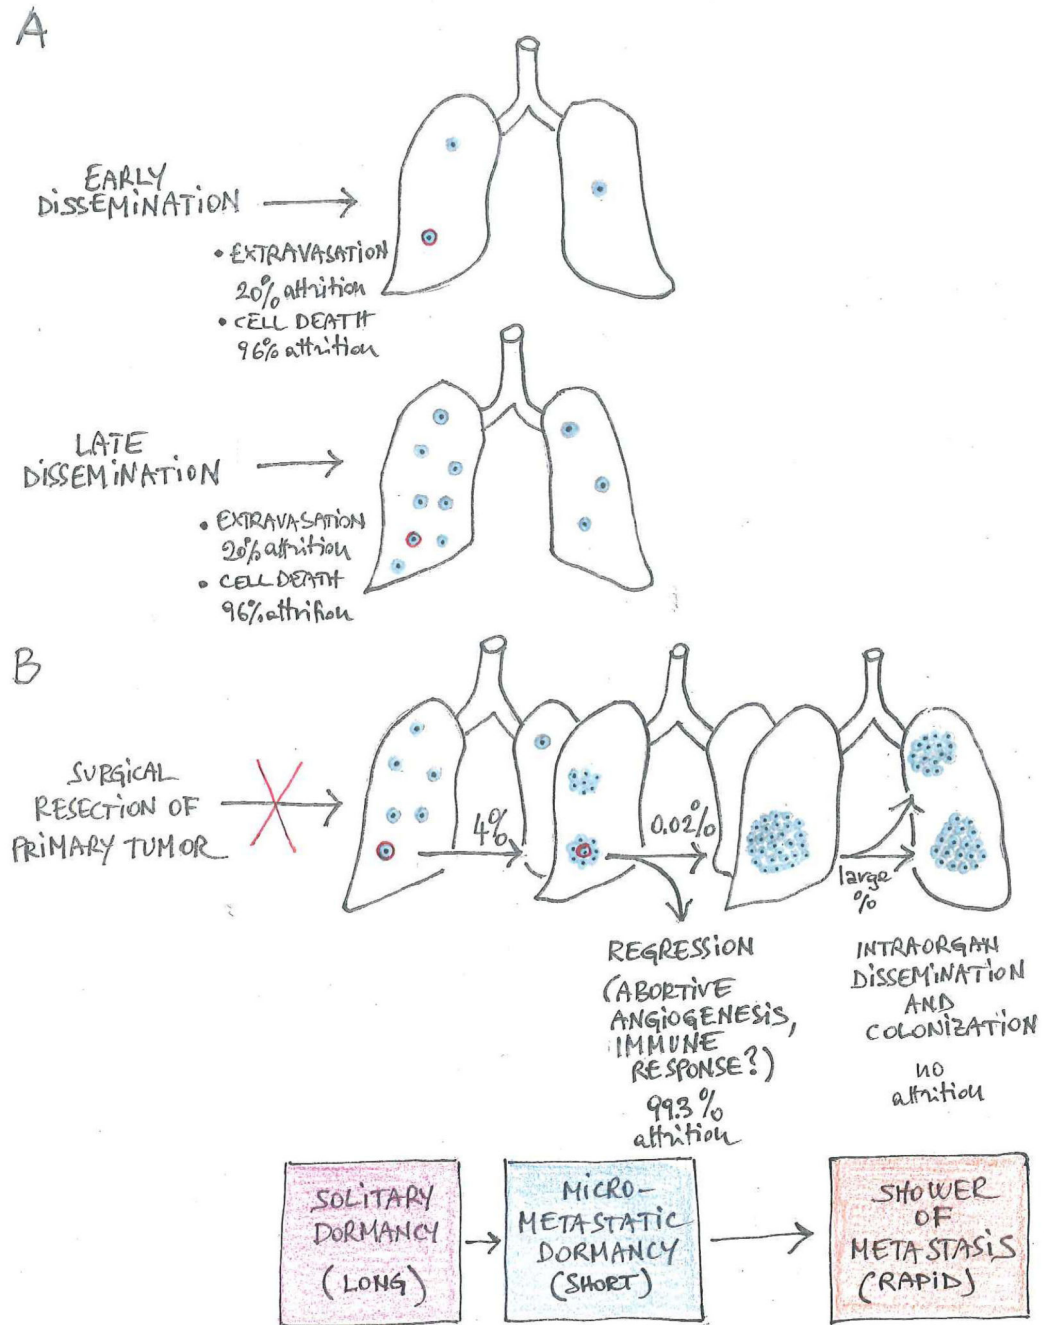 A
EARLY
DISSEMINATION
• EXTRAVASATION
20% attrition
• CELL DEATH
96% attrition
LATE
DISSEMINATION
• EXTRAVASATION
20% attrition
• CELL DEATH
96% attrition
B
SURGICAL
RESECTION OF
PRIMARY TUMOR
4%
0.02%
large
%
REGRESSION
(ABORTIVE
ANGIOGENESIS,
IMMUNE
RESPONSE?)
99.3%
attrition
INTRAORGAN
DISSEMINATION
AND
COLONIZATION
no
attrition
SOLITARY
DORMANCY
(LONG)
MICRO-
METASTATIC
DORMANCY
(SHORT)
SHOWER
OF
METASTASIS
(RAPID)